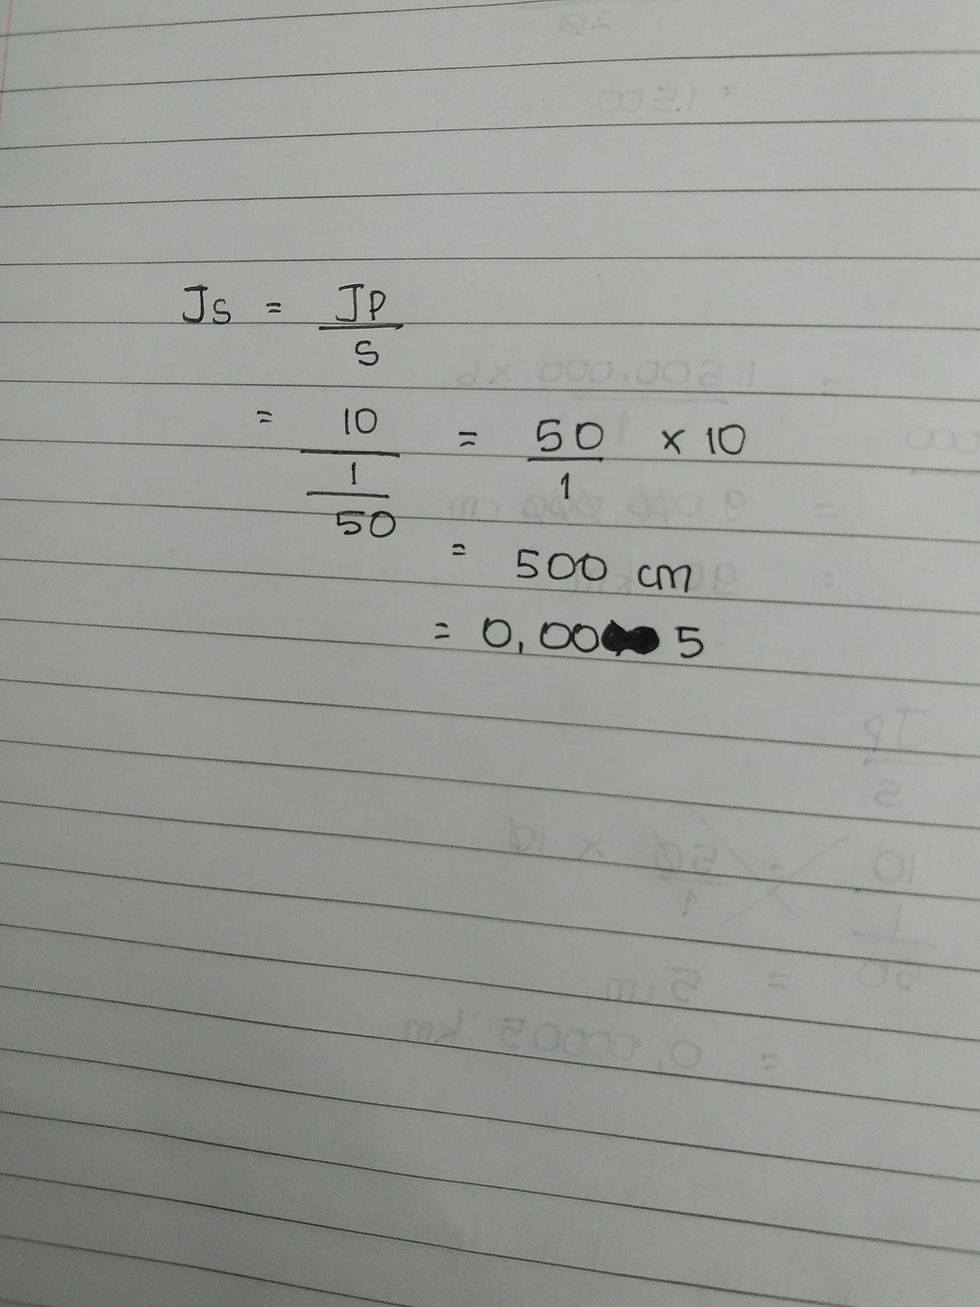 Js = Jp
S
= 10 = 50 x 10
1 1
50
= 500 cm
= 0,00 5